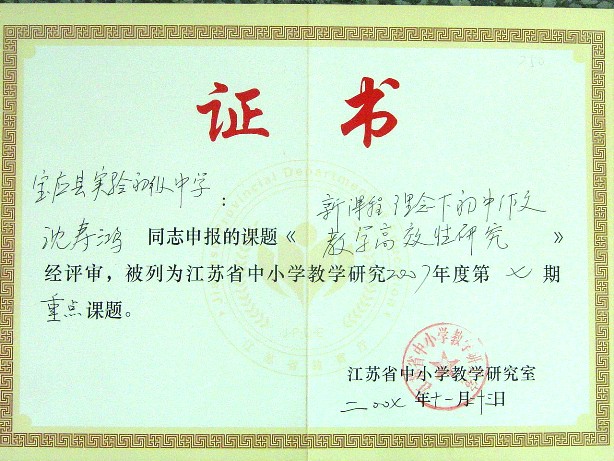 证书
宝应县实验初级中学：
沈寿鸿 同志申报的课题《新课程理念下初中作文教学高效性研究》
经评审，被列为江苏省中小学教学研究2007年度第七期
重点课题。
江苏省中小学教学研究室
二〇〇七年十一月二十三日